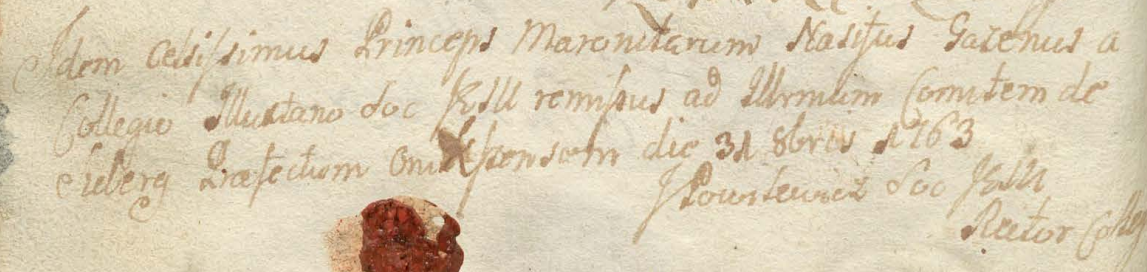 Idem Celsissimus Princeps Maronitarum Nasisus Gazenus a
Collegio Illuxtano Soc JESU remissus ad Illrmum Comitem de
Sieberg Præfectum die 31 8bris 1763
J Powstewicz Soc JESU
Rector Coll